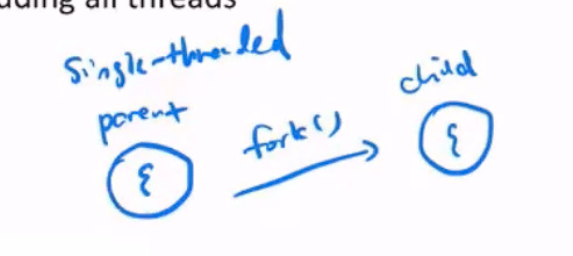 uding all threads
Single-threaded
parent
fork()
child